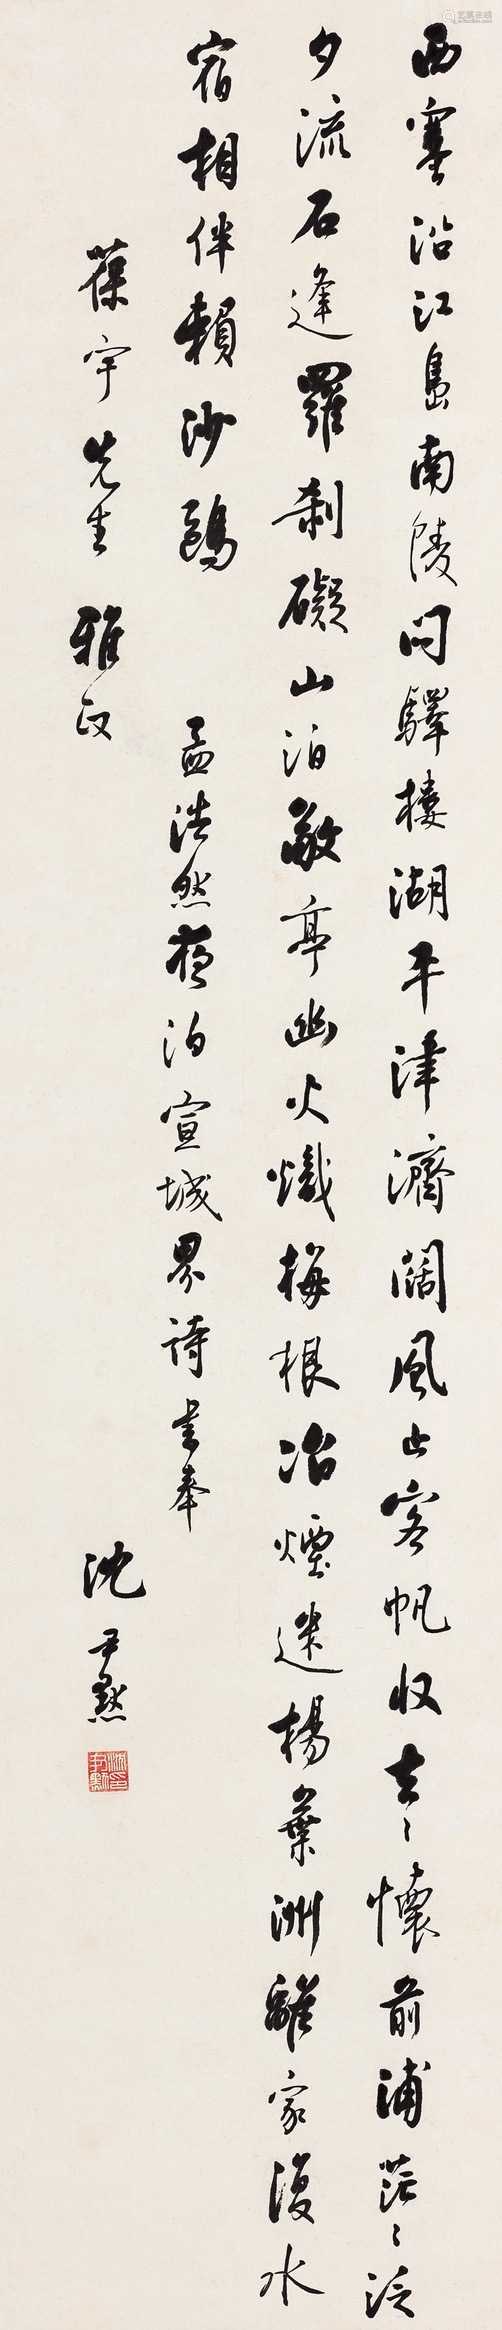 西塞沿江島南陵問驛樓湖平津濟闊風止客帆收去〻懷前浦茫〻泛
夕流石逢羅刹礙山泊敬亭幽火熾梅根冶煙迷楊葉洲離家復水
宿相伴賴沙鷗 孟浩然夜泊宣城界詩書奉
葆宇先生雅政 沈尹默